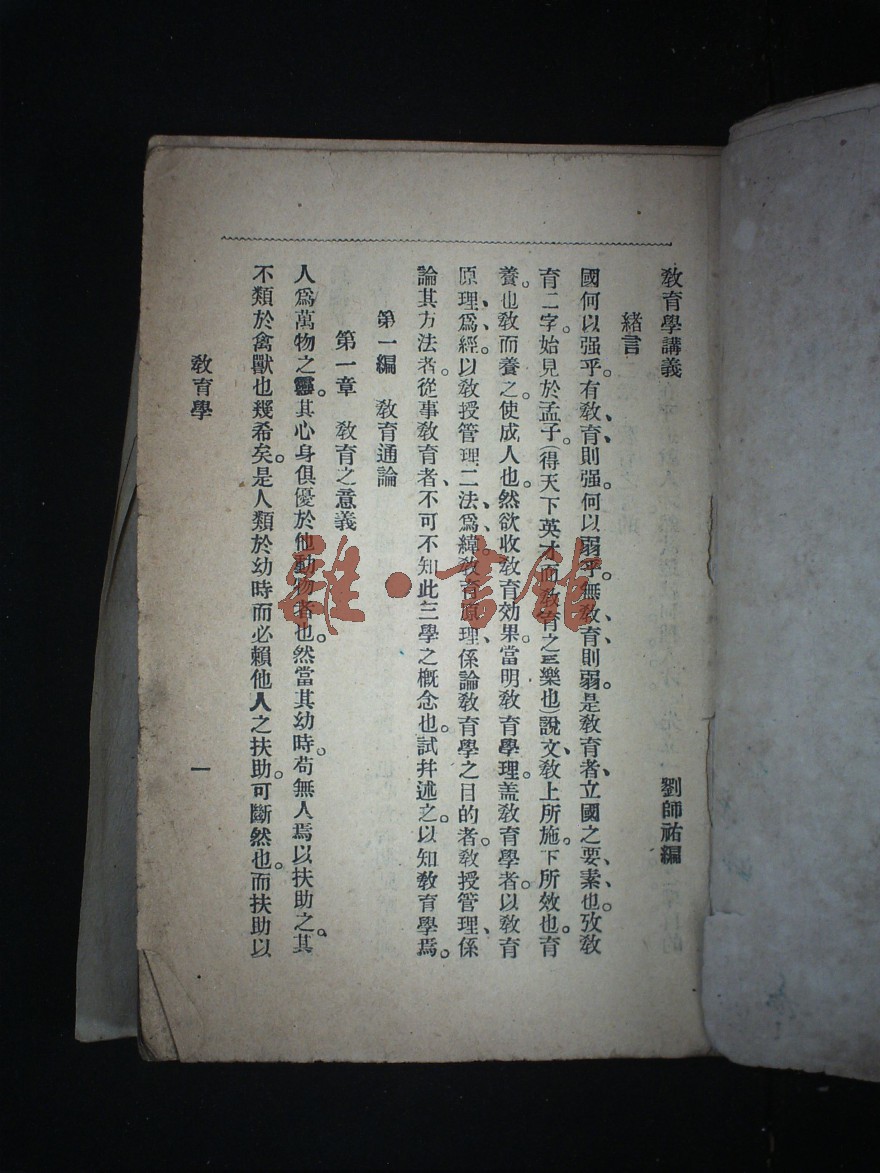 教育學講義
劉師祐編
緒言
國何以强乎。有敎育、則强。何以弱乎。無敎育、則弱。是敎育者、立國之要、素、也。攷敎
育二字。始見於孟子。(得天下英才而敎育之三樂也)說文、敎上所施。下所效也。育
養。也敎而養之。使成人也。然欲收敎育効果。當明敎育學理。盖敎育學者。以敎育
原理、爲、經。以敎授管理、二法、爲、緯。敎育原理、係論敎育學之目的者。敎授管理、係
論其方法者。從事敎育者、不可不知此三學之槪念也。試幷述之。以知敎育學焉。
第一編 敎育通論
第一章 敎育之意義
人爲萬物之靈。其心身俱優於他動物者也。然當其幼時。苟無人焉以扶助之。其
不類於禽獸也幾希矣。是人類於幼時而必賴他人之扶助。可斷然也。而扶助以
敎育學
一
雜·書館